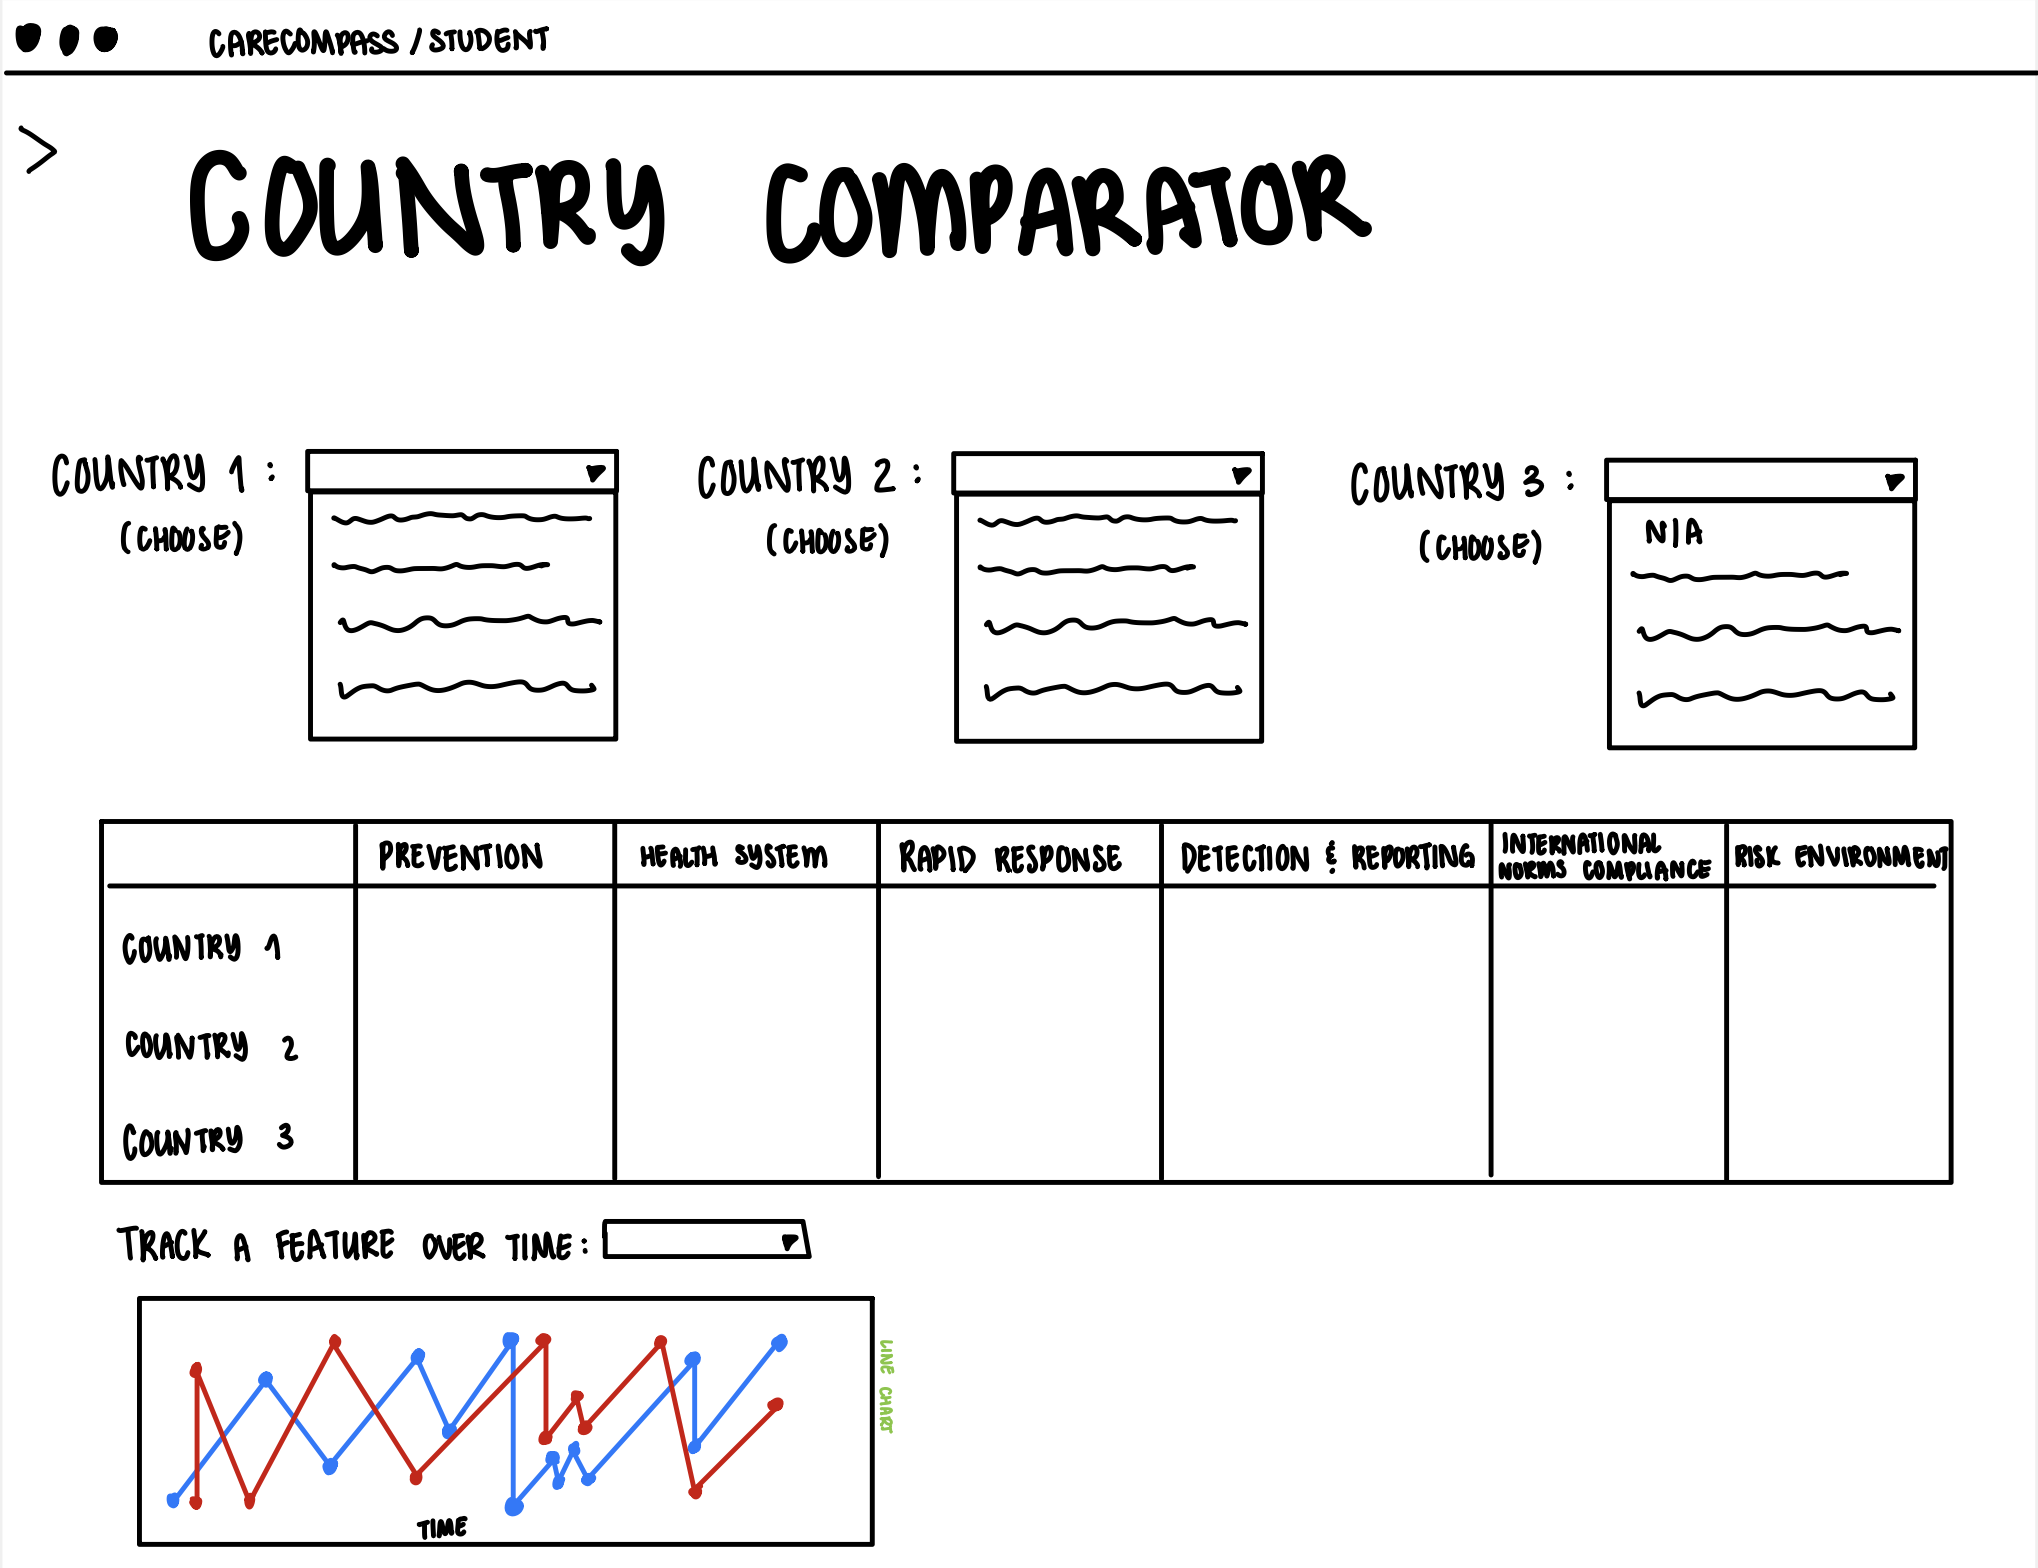 CARECOMPASS / STUDENT
>
COUNTRY COMPARATOR
COUNTRY 1 :
(CHOOSE)
COUNTRY 2 :
(CHOOSE)
COUNTRY 3 :
(CHOOSE)
N/A
PREVENTION
HEALTH SYSTEM
RAPID RESPONSE
DETECTION & REPORTING
INTERNATIONAL
NORMS COMPLIANCE
RISK ENVIRONMENT
COUNTRY 1
COUNTRY 2
COUNTRY 3
TRACK A FEATURE OVER TIME:
LINE CHART
TIME